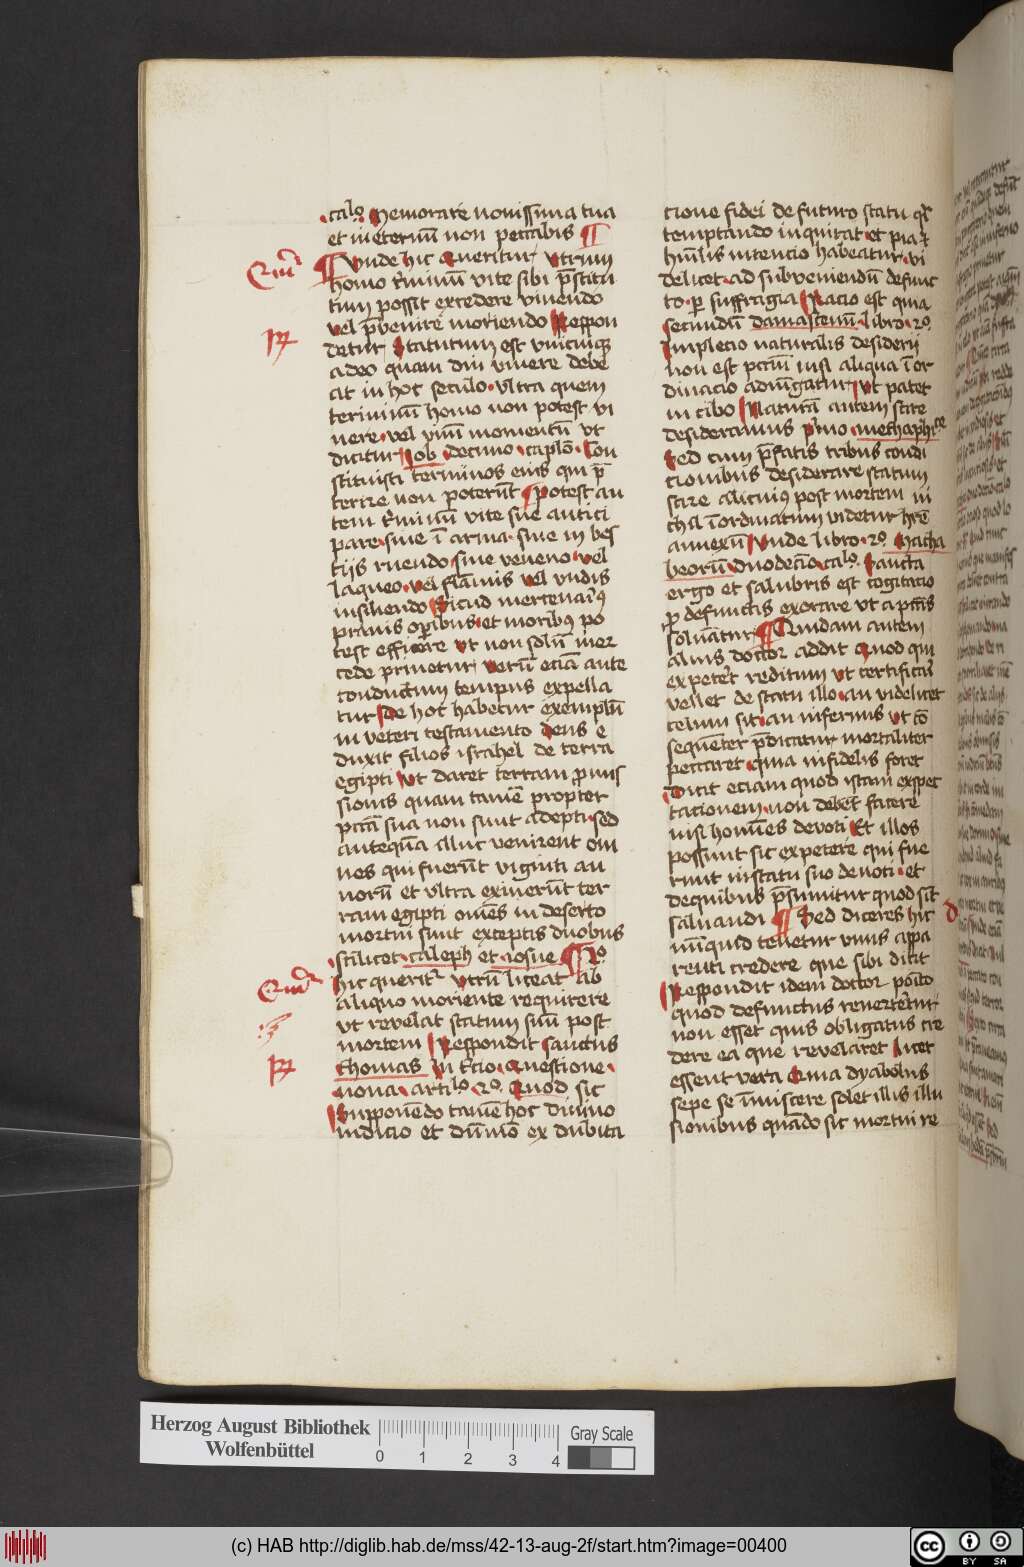 calo Memorare nouissima tua
et in eternū non peccabis
Vnde hic Queritur Vtrum
homo t̄minum vite sibi p̄stitu
tum possit excedere viuendo
vel p̄venire moriendo Respon
detur Statutum est vnicuiqꝫ
adeo quam diu viuere debe
at in hoc seculo vltra quem
terminū homo non potest vi
uere vel vnū momentū vt
dicitur Iob decimo caplō Con
stituisti terminos eius qui p̄
terire non poterūt Potest au
tem t̄minū vite sue antici
pare siue ī arma siue in bes
tijs ruendo siue veneno vel
laqueo vel flāmis vel vndis
insiliendo Sicud mercenariꝰ
prauis oꝑibus et moribus po
test efficere vt non solū mer
cede priuetur verū eciā ante
conductum tempus expella
tur De hoc habetur exemplū
in veteri testamento deus e
duxit filios israhel de terra
egipti vt daret terram ꝓmis
sionis quam tamē propter
pctā sua non sunt adepti sed
anteqꝫ illuc venirent om
nes qui fuerūt viginti an
norū et vltra exiuerūt ter
ram egipti omēs in deserto
mortui sunt exceptis duobus
scilicet caleph et iosue 2o
hic querit Vtrū liceat ab
aliquo moriente requirere
vt revelat statum suū post
mortem Respondit sanctus
thomas In t̄cio Questione
nona artilo 2o Quod sic
Supponēdo tamē hoc diuino
iudicio et dūmō ex dubita
cione fidei de futuro statu
temptando inquirat et pia
hūilis intencio habeatur vi
delicet ad subueniendū defunc
to ꝑ suffragia Racio est quia
secundū damascenū libro 2o
Impletio naturalis desiderij
non est pctm̄ nisi aliqua īor
dinacio adiūgatur vt patet
in cibo Naturā autem scire
desideramus p̄mo methaphice
Sed cum p̄fatis tribus condi
cionibus desiderare statum
scire alicuiꝰ post mortem ni
chil īordinatum videtur hr̄e
annexū Vnde libro 2o Macha
beorū duodecīo calo Sancta
ergo et salubris est cogitacio
ꝓ defunctis exorare vt a pctīs
soluātur Quidam autem
alius doctor addit Quod qui
expeteret reditum vt certificari
vellet de statu illo an videlicet
celum sit an infernus vt cō
sequēter p̄dicatur mortaliter
peccaret quia infidelis foret
Dicit eciam quod istam exspec
tacionem non debēt facere
nisi homīes devoti Et illos
possunt sic expetere qui fue
runt in statu suo devoti et
de quibus p̄sumitur quod sīt
saluandi Sed diceres hic
nūquid tenetur vnus appa
renti credere que sibi dicit
Respondit idem doctor
quod defunctus reuertētur
non esset quis obligatus cre
dere ea que revelaret licet
essent vera Quia dyabolus
sepe se īmiscere solet illis illu
sionibus quādo sic mortui re
Herzog August Bibliothek
Wolfenbüttel
0 1 2 3 4
Gray Scale
(c) HAB http://diglib.hab.de/mss/42-13-aug-2f/start.htm?image=00400
cc BY SA